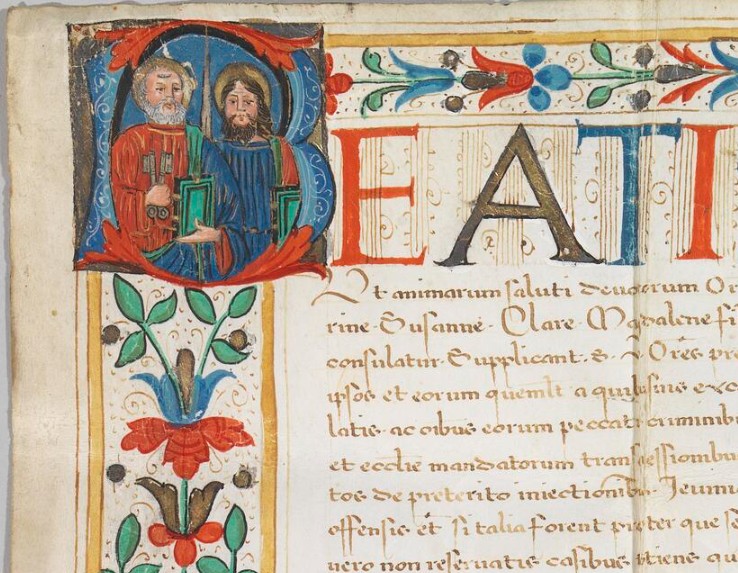 BEATI
Ut animarum saluti devotorum Or
rine. Susanne. Clare. Magdalene fi
consulatur. Supplicant. S. v. Ores pre
ipsos et eorum quemlt a quibusuis exc
latis. ac oibus eorum peccatis criminibu
et ecclie mandatorum transgressionibu
tos de preterito iniectionibus. Ieiuni
offensis et si talia forent propter que se
vero non reservatis casibus